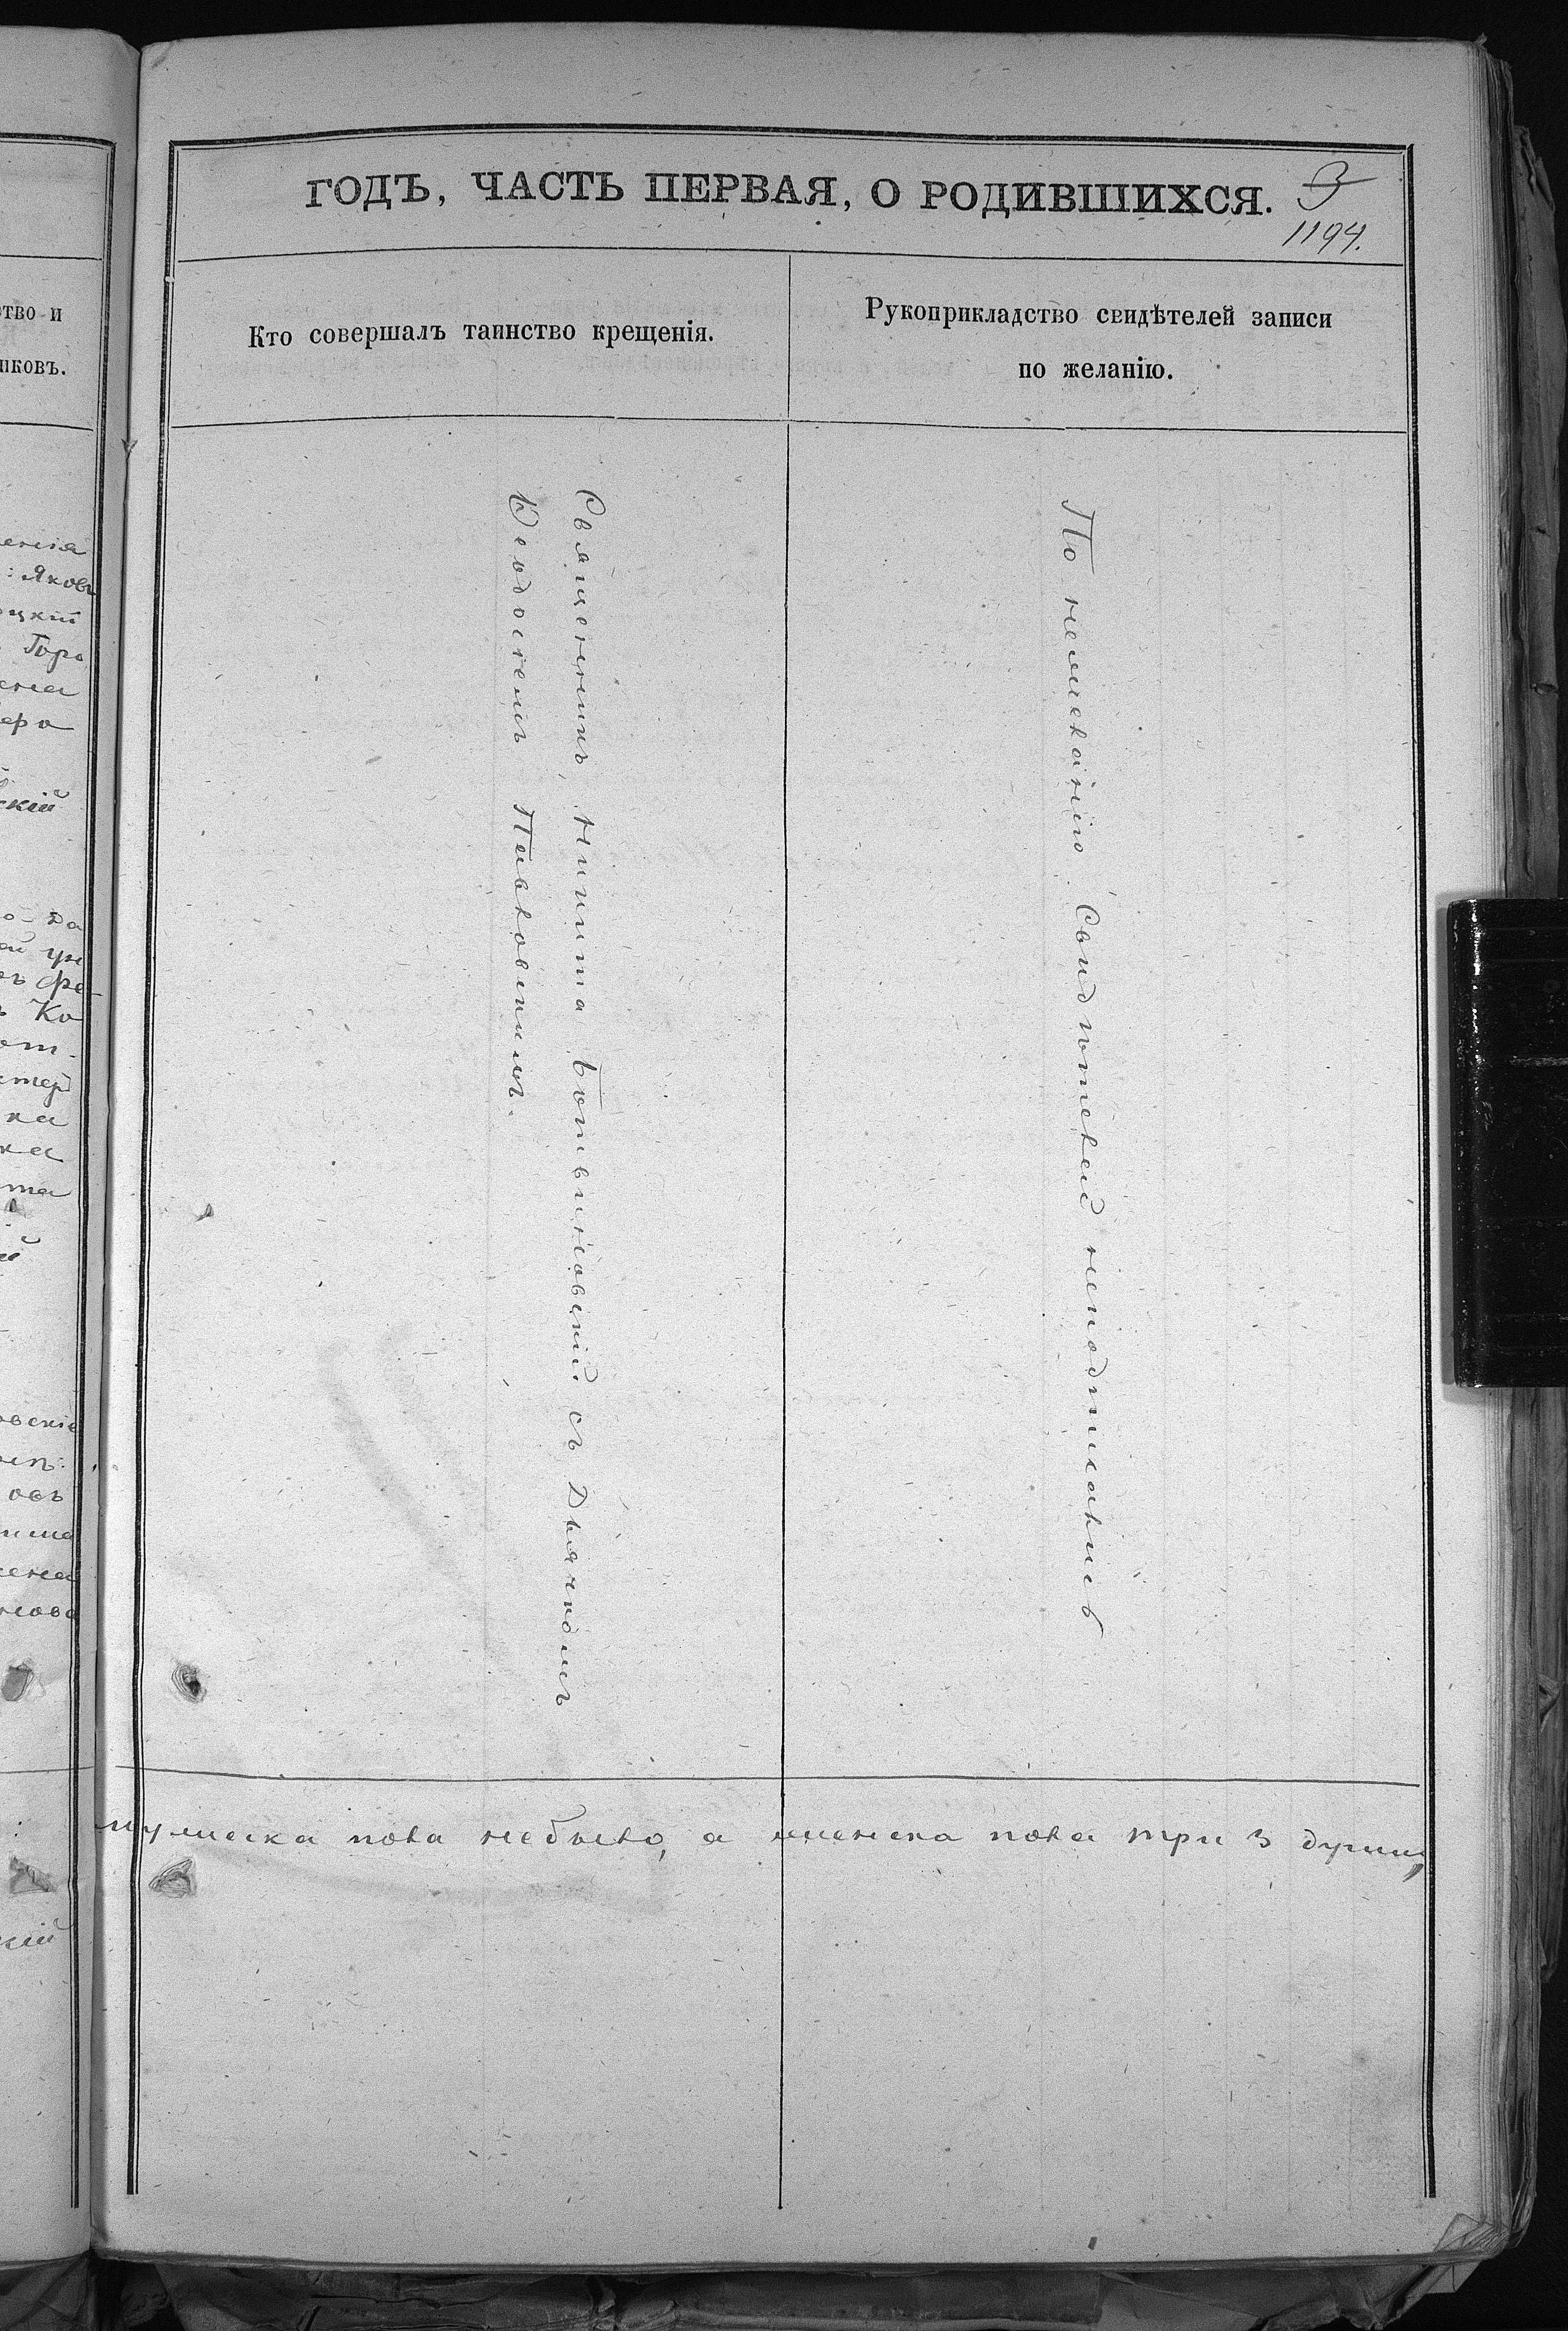 ГОДЪ, ЧАСТЬ ПЕРВАЯ, О РОДИВШИХСЯ. 3
1194.
ство и
иковъ.
Кто совершалъ таинство крещенія.
Рукоприкладство свидѣтелей записи
по желанію.
Яковъ
Горо
скій
Ко
Священникъ, Никита Ботвиновскій съ Дьячкомъ
Ѳеодосіемъ Павловскимъ.
По нежеланію Свидѣтелей неподписались
мужеска пола небыло, а женска пола три 3 души,